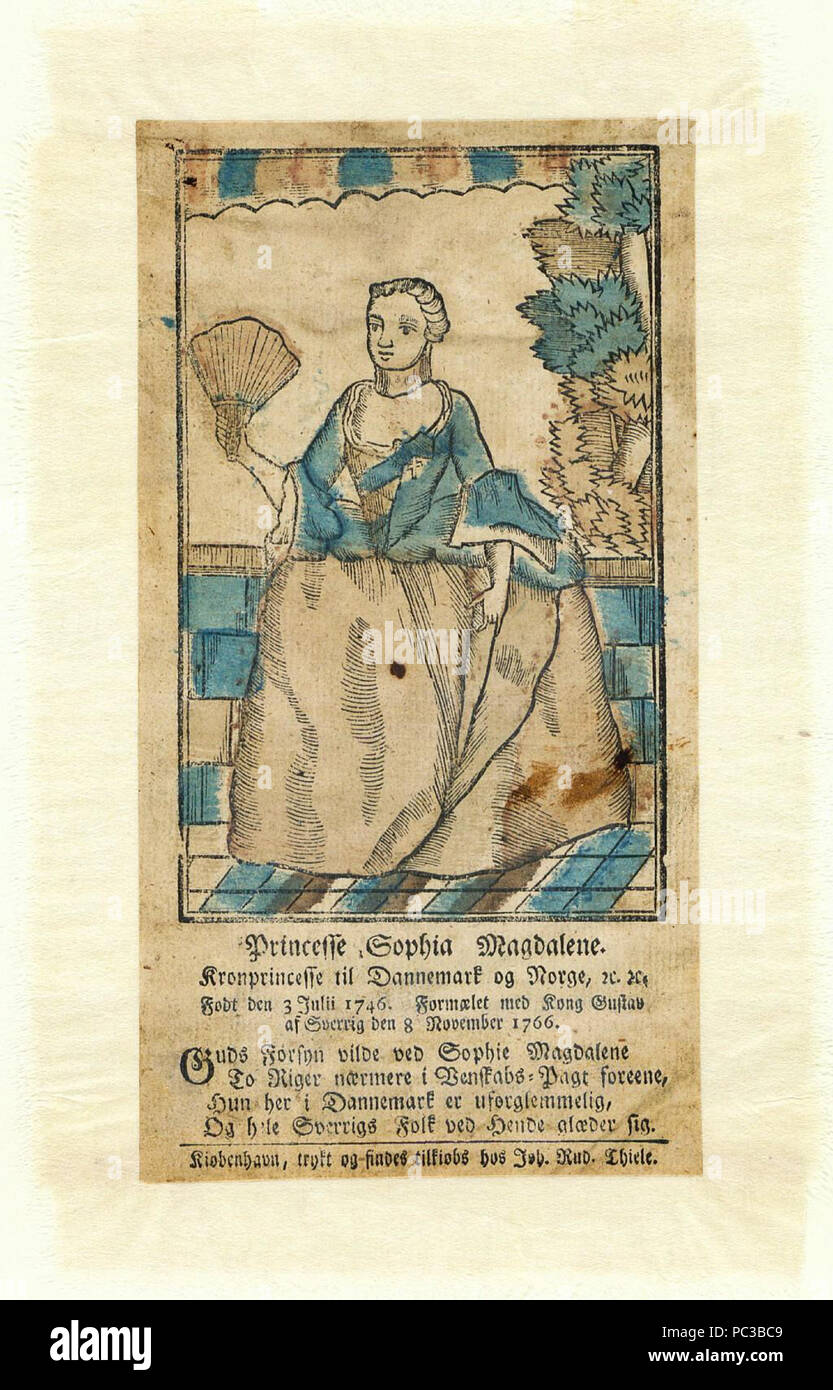 Princesse Sophia Magdalene.
Kronprincesse til Dannemark og Norge, ꝛc. ꝛc.
Fodt den 3 Julii 1746. Formælet med Kong Gustav
af Sverrig den 8 November 1766.
Guds Forsyn vilde ved Sophie Magdalene
To Riger nærmere i Venskabs-Pagt foreene,
Hun her i Dannemark er uforglemmelig,
Og hele Sverrigs Folk ved Hende glæder sig.
Kiøbenhavn, trykt og findes tilkiøbs hos Joh. Rud. Thiele.
a
alamy stock photo
a alamy
Image ID: PC3BC9
www.alamy.com